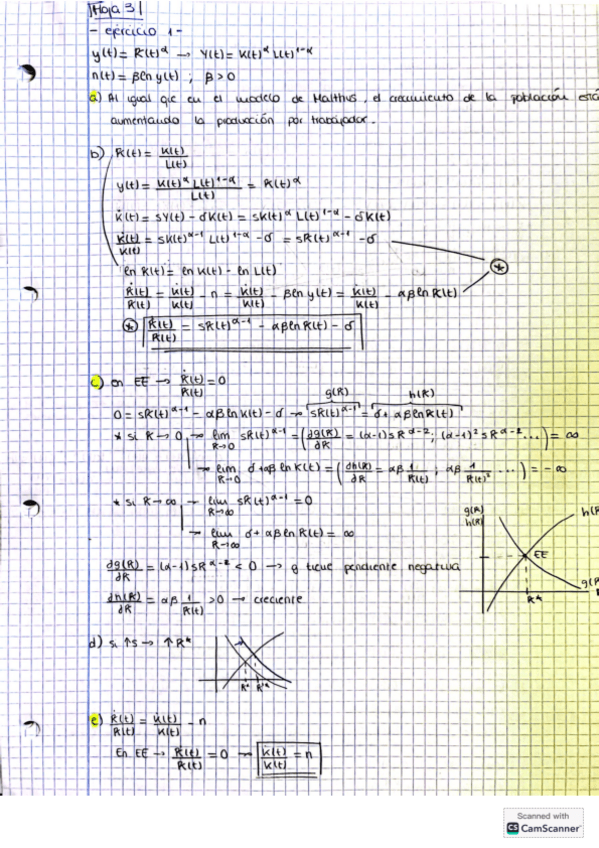 Hoja 3
- ejercicio 1 -
y(t) = k(t)^α → Y(t) = K(t)^α L(t)^1-α
n(t) = β ln y(t) ; β > 0
a) Al igual que en el modelo de Malthus, el crecimiento de la población está
aumentando la producción por trabajador.
b) k(t) = K(t)/L(t)
y(t) = K(t)^α L(t)^1-α / L(t) = k(t)^α
K̇(t) = sY(t) - δK(t) = sK(t)^α L(t)^1-α - δK(t)
K̇(t)/K(t) = sK(t)^α-1 L(t)^1-α - δ = sk(t)^α-1 - δ
ln k(t) = ln K(t) - ln L(t)
k̇(t)/k(t) = K̇(t)/K(t) - n = K̇(t)/K(t) - β ln y(t) = K̇(t)/K(t) - αβ ln k(t)
* k̇(t)/k(t) = sk(t)^α-1 - αβ ln k(t) - δ
*
c) en EE → k̇(t)/k(t) = 0
g(k) h(k)
0 = sk(t)^α-1 - αβ ln k(t) - δ → sk(t)^α-1 = δ + αβ ln k(t)
* si k → 0 → lim k→0 sk(t)^α-1 = (∂g(k)/∂k = (α-1)sk^α-2; (α-1)² sk^α-2 ...) = ∞
→ lim k→0 δ + αβ ln k(t) = (∂h(k)/∂k = αβ 1/k(t); αβ 1/k(t)² ...) = -∞
* si k → ∞ → lim k→∞ sk(t)^α-1 = 0
→ lim k→∞ δ + αβ ln k(t) = ∞
∂g(k)/∂k = (α-1)sk^α-2 < 0 → g tiene pendiente negativa
∂h(k)/∂k = αβ 1/k(t) > 0 → creciente
g(k)
h(k)
h(k
EE
g(k
k*
d) si ↑s → ↑k*
k* k'*
e) k̇(t)/k(t) = K̇(t)/K(t) - n
En EE → k̇(t)/k(t) = 0 → K̇(t)/K(t) = n
Scanned with
CS CamScanner